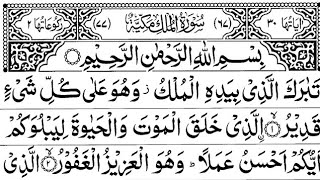 اٰیَاتُهَا ٣٠ (٦٧) سُوْرَةُ الْمُلْكِ مَكِّیَّةٌ (٧٧) رُكُوْعَاتُهَا ٢
بِسْمِ اللهِ الرَّحْمٰنِ الرَّحِیْمِ
تَبٰرَكَ الَّذِیْ بِیَدِهِ الْمُلْكُ ز وَهُوَ عَلٰى كُلِّ شَیْءٍ
قَدِیْرُ ۙ﴿١﴾ ۨالَّذِیْ خَلَقَ الْمَوْتَ وَالْحَیٰوةَ لِیَبْلُوَكُمْ
اَیُّكُمْ اَحْسَنُ عَمَلًا ؕ وَهُوَ الْعَزِیْزُ الْغَفُوْرُ ۙ﴿٢﴾ الَّذِیْ